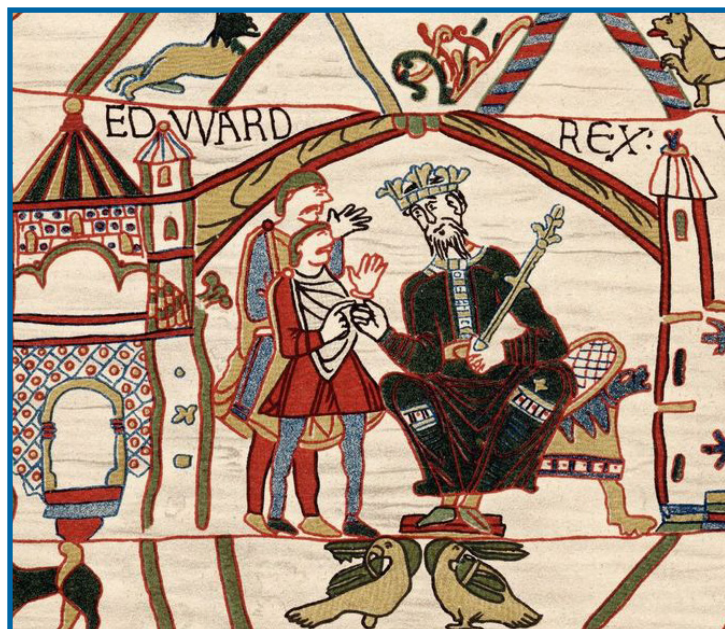 ED VVARD REX: